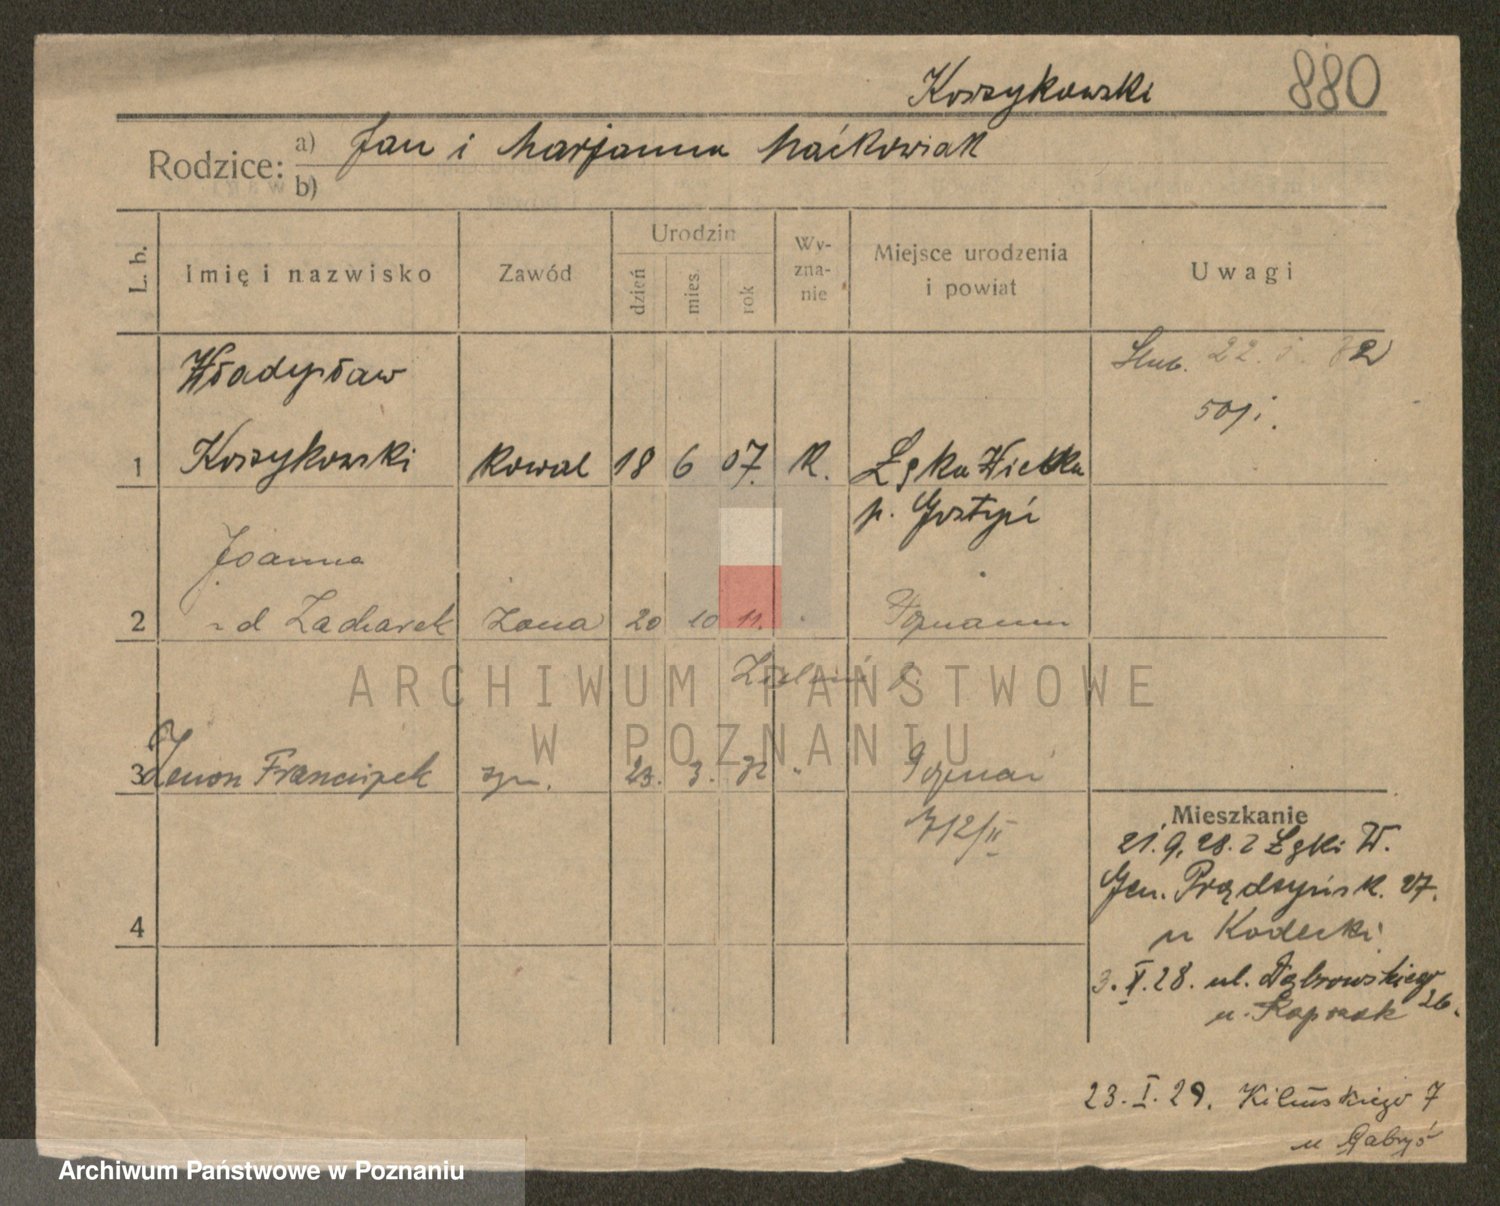 Koszykowski 880
Rodzice: a) Jan i Marjanna Maćkowiak
b)
L. b. Imię i nazwisko Zawód Urodzin dzień mies. rok Wyznanie Miejsce urodzenia i powiat Uwagi
Władysław
Ślub. 22. 32
501/i.
1 Koszykowski kowal 18 6 07. K. Łęka Wielka
p. Gostyń
Joanna
2 z d Zacharek żona 20 10 11. " Poznaniu
3 Zenon Franciszek syn. 23. 3. 32 " Poznań
712/II
4
Mieszkanie
21.9.28. z Łęki W.
Gen. Prądzyńsk. 27.
u Kodecki
3.X.28. ul. Dąbrowskiego 26.
u. Kapczak
23.I.29. Kilińskiego 7
u Gabryś
ARCHIWUM PAŃSTWOWE
W POZNANIU
Archiwum Państwowe w Poznaniu